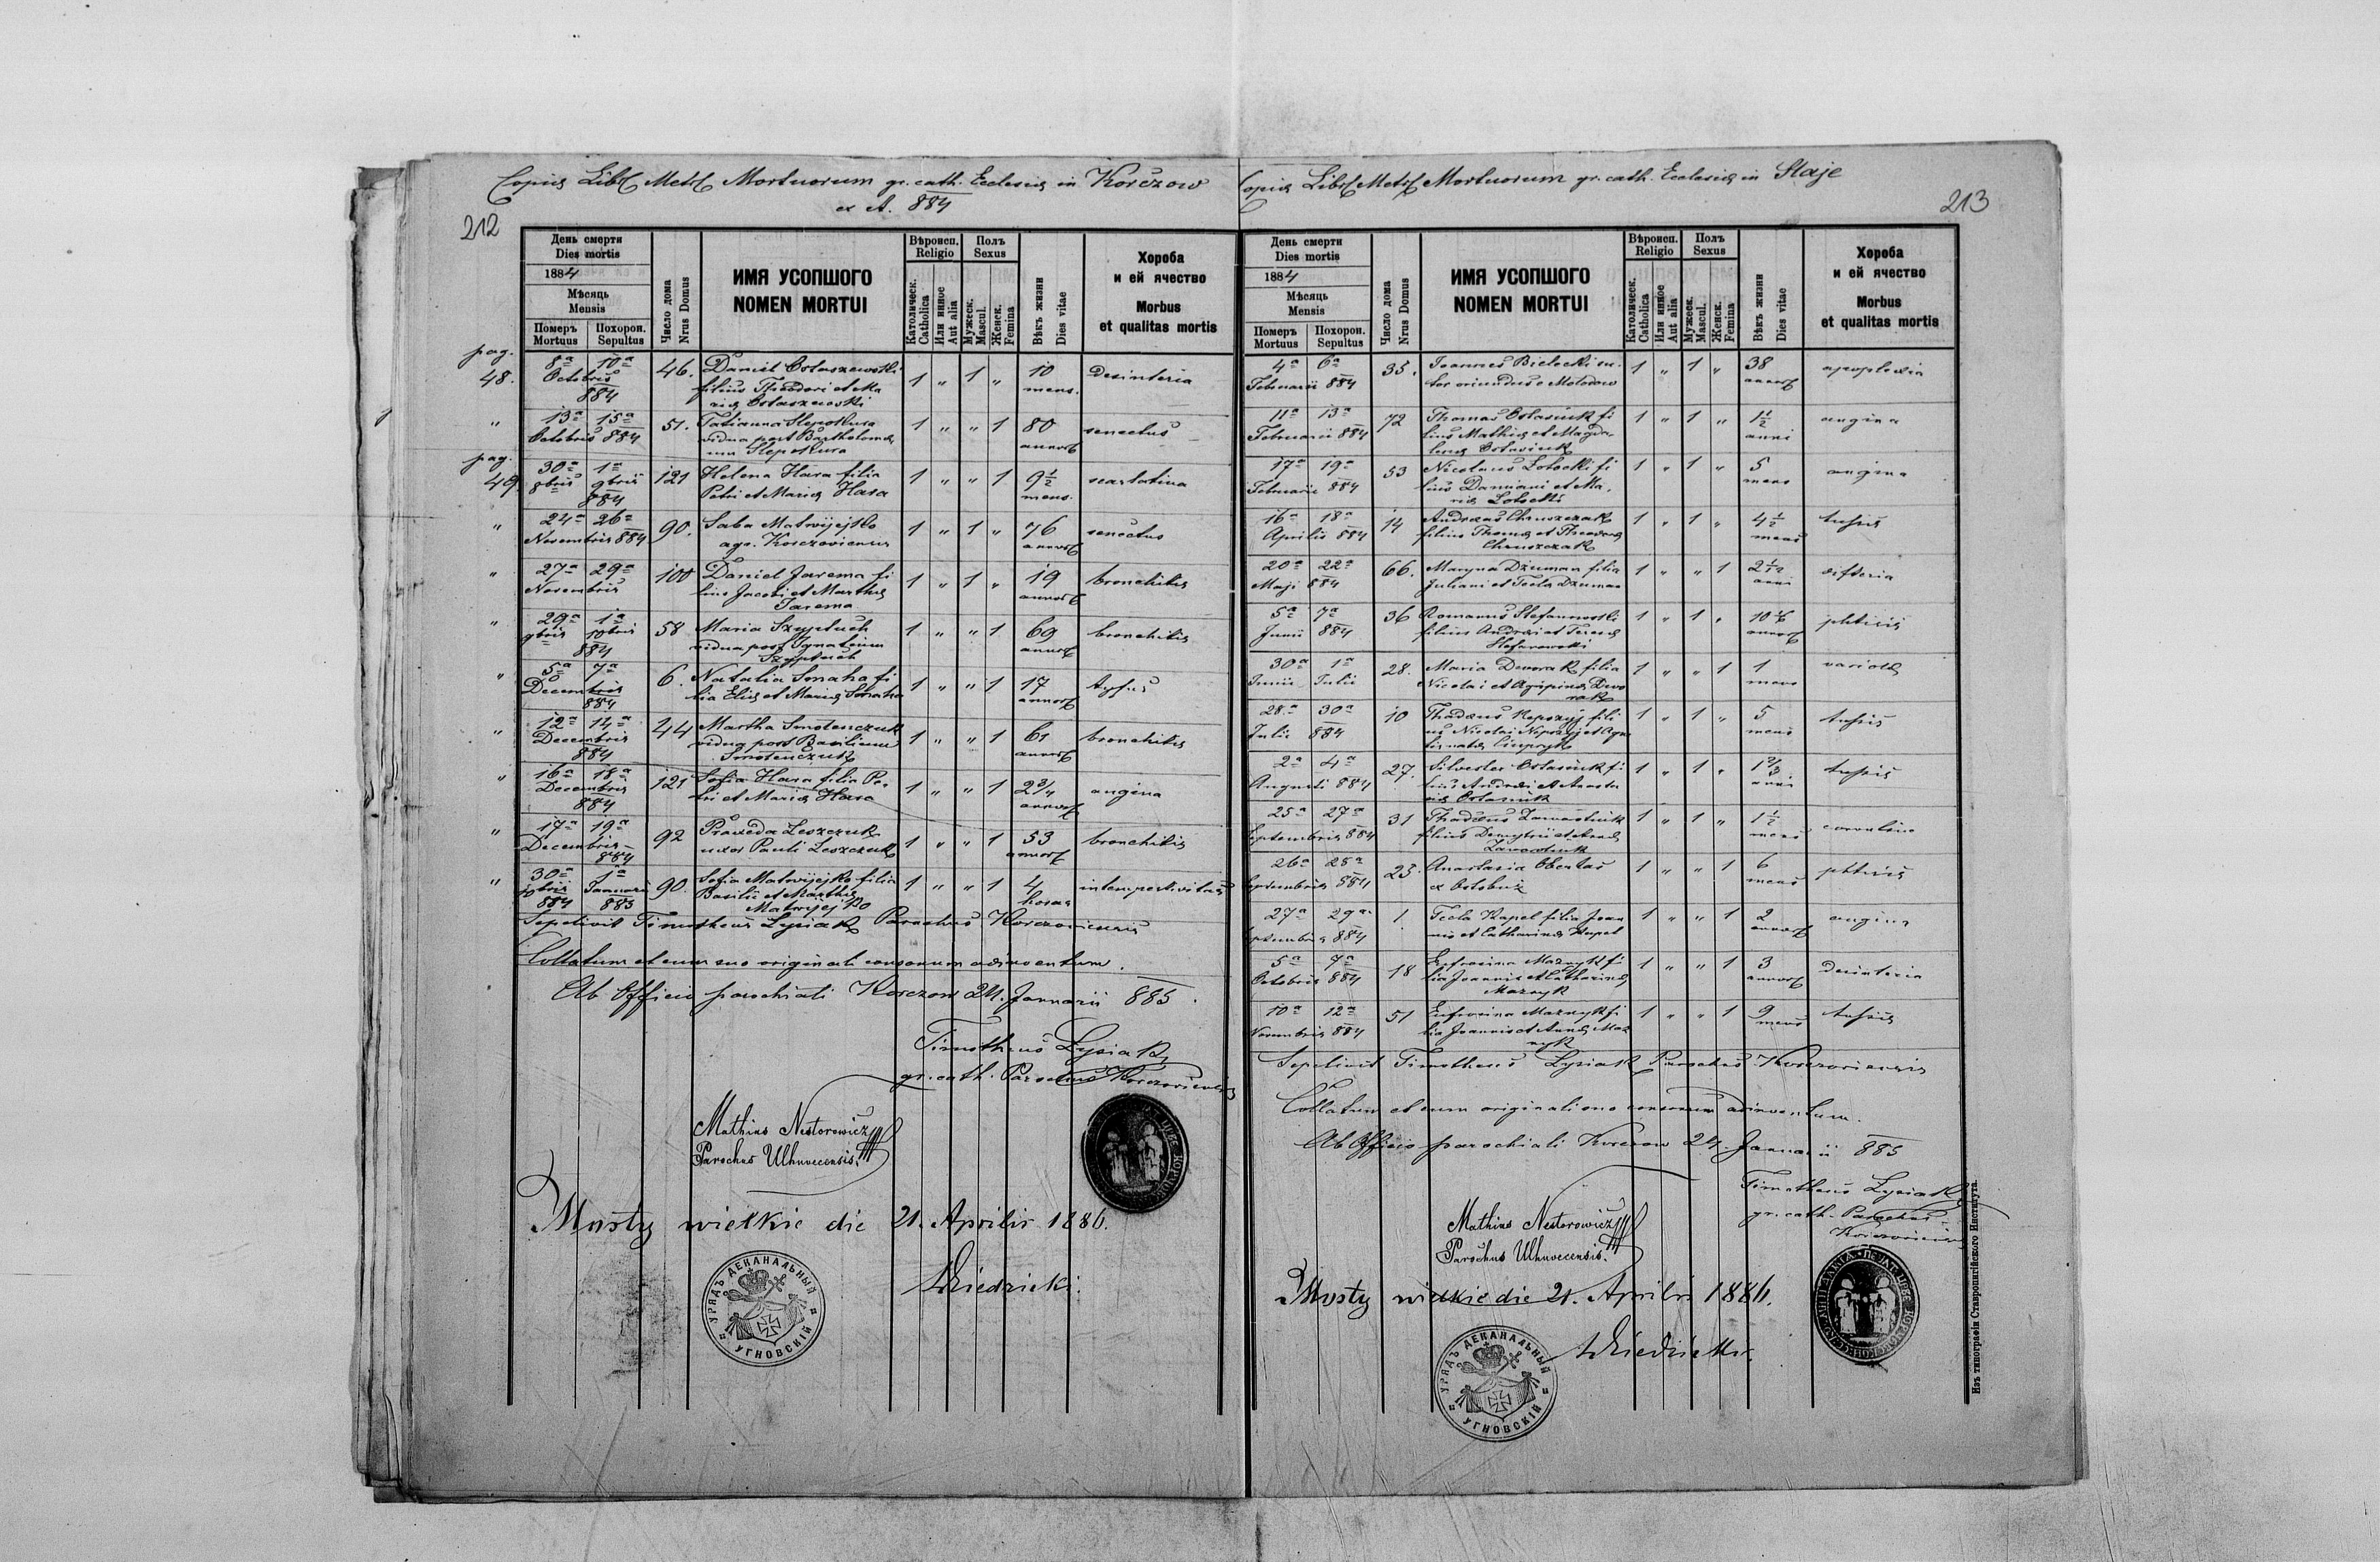 Copia Libr Metr Mortuorum gr. cath. Ecclesiæ in Korczow
ex A. 884
212
День смерти
Dies mortis
1884
Мѣсяць
Mensis
Померъ
Mortuus
Похорон.
Sepultus
Число дома
Nrus Domus
ИМЯ УСОПШОГО
NOMEN MORTUI
Вѣроисп.
Religio
Католическ.
Catholica
Или инное
Aut alia
Полъ
Sexus
Мужеск.
Mascul.
Женск.
Femina
Вѣкъ жизни
Dies vitae
Хороба
и ей ячество
Morbus
et qualitas mortis
pag. 48. 8a 10a Octobris 884 46. Daniel Ostaszewski
filius Theodori et Ma
riæ Ostaszewski 1 " 1 " 10 mens. desinteria
" 13a 15a Octobris 884 51. Tatianna Slepokura
vidua post Bartholomæ
um Slepokura 1 " " 1 80 annor senectus
pag. 49. 30a 8bris 1a 9bris 884 121 Helena Hara filia
Petri et Mariæ Hara 1 " " 1 9 1/2 mens. scarlatina
" 24a 26a Novembris 884 90. Saba Matwijejko
agr. Korczoviensis 1 " 1 " 76 annor senectus
" 27a 29a Novembris 100 Daniel Jarema fi
lius Jacobi et Marthæ
Jarema 1 " 1 " 19 annor bronchitis
" 29a 9bris 1a 10bris 884 58 Maria Szyptuch
vidua post Ignatium
Szyptuch 1 " " 1 69 annor bronchitis
" 5a 7a Decembris 884 6. Natalia Smaha fi
lia Eliæ et Mariæ Smaha 1 " " 1 17 annor tyfus
" 12a 14a Decembris 884 44 Martha Smolenczuk
vidua post Basilium
Smolenczuk 1 " " 1 61 annor bronchitis
" 16a 18a Decembris 884 121 Sofia Hara filia Pe
tri et Mariæ Hara 1 " " 1 2 3/4 annor angina
" 17a 19a Decembris 884 92 Praxeda Leszczuk
uxor Pauli Leszczuk 1 " " 1 53 annor bronchitis
" 30a 10bris 884 1a Januarii 885 90. Sofia Matwijejko filia
Basilii et Marthæ
Matwijejko 1 " " 1 4 horas intempestivitas
Sepelivit Timotheus Lysiak Parochus Korczoviensis
Collatum et cum suo originali consonum adinventum.
Ab Officio parochiali Korczow 24. Januarii 885.
Timotheus Lysiak
gr. cath. Parochus Korczoviensis
Mathias Nestorowicz
Parochus Uhnovecensis.
Mosty wielkie die 21. Aprilis 1886.
Dziedzicki.
УРЯДЪ ДЕКАНАЛЬНЫЙ
УГНОВСКІЙ
Copia Libr Metr Mortuorum gr. cath. Ecclesiæ in Staje
213
День смерти
Dies mortis
1884
Мѣсяць
Mensis
Померъ
Mortuus
Похорон.
Sepultus
Число дома
Nrus Domus
ИМЯ УСОПШОГО
NOMEN MORTUI
Вѣроисп.
Religio
Католическ.
Catholica
Или инное
Aut alia
Полъ
Sexus
Мужеск.
Mascul.
Женск.
Femina
Вѣкъ жизни
Dies vitae
Хороба
и ей ячество
Morbus
et qualitas mortis
4a 6a Februarii 884 35. Joannes Bielecki su
tor oriundus e Motodow 1 " 1 " 38 annor apoplexia
11a 13a Februarii 884 72 Thomas Ostasiuk fi
lius Mathiæ et Magda
lenæ Ostasiuk 1 " 1 " 1 1/2 anni angina
17a 19a Februarii 884 53 Nicolaus Lotocki fi
lius Damiani et Ma
riæ Lotocki 1 " 1 " 5 mens angina
16a 18a Aprilis 884 14 Andreas Chruszczak
filius Thomæ et Theodoræ
Chruszczak 1 " 1 " 4 1/2 mens tussis
20a 22a Maji 884 66. Maryna Dżuman filia
Juliani et Tecla Dżuman 1 " " 1 2 1/12 anni difteria
5a 7a Junii 884 36 Romanus Stefanowski
filius Andreæ et Teresæ
Stefanowski 1 " 1 " 10 1/6 annor phtisis
30a 1a Junii Julii 28. Maria Dworak filia
Nicolai et Agripinæ Dwo
rak 1 " " 1 1 mens variolæ
28a 30a Julii 884 10 Thadæus Kopszyj fili
us Nicolai Kopszyj et Aga 1 " 1 " 5 mens tussis
2a 4a Augusti 884 27. Silvester Ostasiuk fi
lius Andreæ et Anasta
siæ Ostasiuk 1 " 1 " 1 2/3 anni tussis
25a 27a Septembris 884 31 Thadæus Zawostiuk
filius Demytrii et Annæ
Zawostiuk 1 " 1 " 1 1/2 mens
26a 28a Septembris 884 23. Anastasia Obertas
ex Ostobuż 1 " " 1 6 mens phtisis
27a 29a Septembris 884 1. Tecla Kapel filia Joan
nis et Catharinæ Kapel 1 " " 1 2 annor angina
5a 7a Octobris 884 18 Eufrosina Maznyk fi
lia Joannis et Catharinæ
Maznyk 1 " " 1 3 annor desinteria
10a 12a Novembris 884 51 Eufrosina Maznyk fi
lia Joannis et Annæ Maz
nyk 1 " " 1 9 mens tussis
Sepelivit Timotheus Lysiak Parochus Korczoviensis
Collatum et cum originali suo consonum adinventum.
Ab Officio parochiali Korczow 24. Januarii 885
Timotheus Lysiak
gr. cath. Parochus
Korczoviensis
Mathias Nestorowicz
Parochus Uhnovecensis.
Mosty wielkie die 21. Aprilis 1886.
Dziedzicki.
УРЯДЪ ДЕКАНАЛЬНЫЙ
УГНОВСКІЙ
Изъ типографіи Ставропигійского Института.